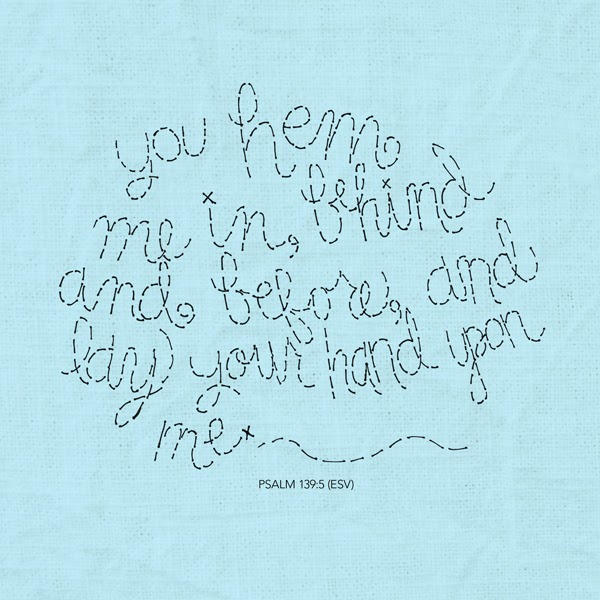 you hem
me in, behind
and before, and
lay your hand upon
me
PSALM 139:5 (ESV)